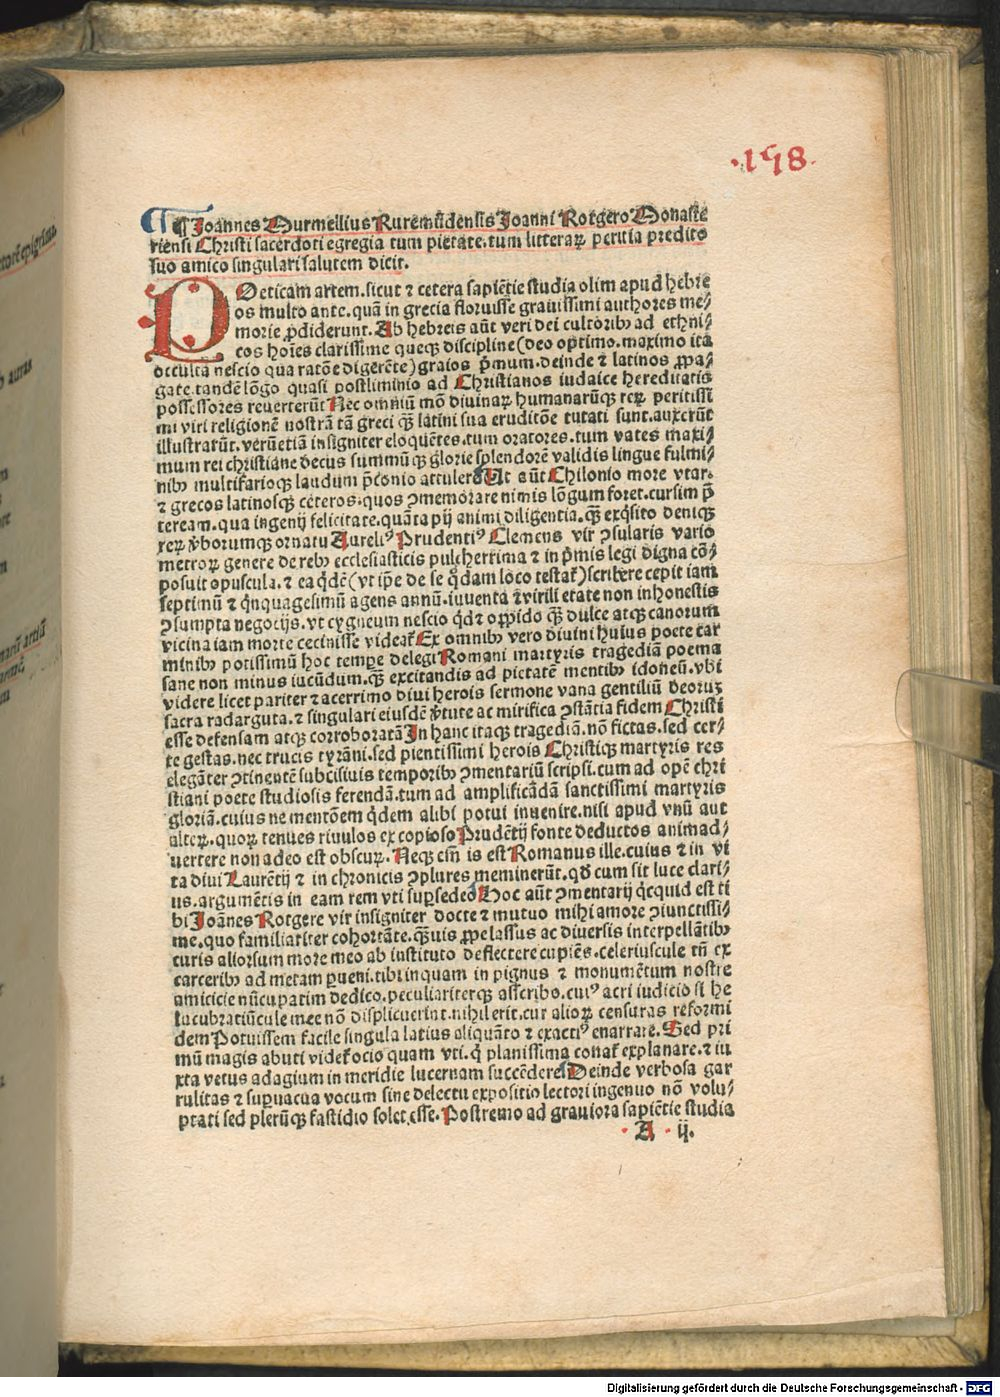 ·158·
¶ Joannes Murmellius Ruremūdensis Joanni Rotgero Monaste
riensi Christi sacerdoti egregia tum pietate.tum litteraꝝ peritia predito
suo amico singulari salutem dicit.
POeticam artem.sicut ⁊ cetera sapiētie studia olim apud hebre
os multo ante.quā in grecia floruisse grauissimi authores me⸗
morie ꝓdiderunt.Ab hebreis aūt veri dei cultoribꝰ ad ethni⸗
cos hoīes clarissime queqꝫ discipline(deo optimo.maximo ita
occulta nescio qua ratōe digerēte)graios p̄mum.deinde ⁊ latinos ꝓpa⸗
gate.tandē lōgo quasi postliminio ad Christianos iudaice hereditatis
possessores reuerterūt Nec omniū mō diuinaꝝ humanarūqꝫ reꝝ peritissi
mi viri religionē nostrā tā greci qꝫ latini sua eruditōe tutati sunt.auxerūt
illustrarūt.verūetiā insigniter eloquētes.tum oratores.tum vates maxi⸗
mum rei christiane decus summū qꝫ glorie splendorē validis lingue fulmi⸗
nibꝰ multifarioqꝫ laudum p̄conio attulerūt Ut aūt Chilonio more vtar.
⁊ grecos latinosqꝫ ceteros.quos ꝯmemorare nimis lōgum foret.cursim p̄
teream.qua ingenij felicitate.quāta pij animi diligentia.qꝫ exq̇sito deniqꝫ
reꝝ v̓borumqꝫ ornatu Aureliꝰ Prudentiꝰ Clemens vir ꝯsularis vario
metroꝝ genere de rebꝰ ecclesiasticis pulcherrima ⁊ in p̄mis legi digna cō⸗
posuit opuscula.⁊ ea q̇dē(vt ip̄e de se q̇dam loco testat᷑)scribere cepit iam
septimū ⁊ q̇nquagesimū agens annū.iuuenta ⁊ virili etate non in honestis
ꝯsumpta negocijs.vt cygneum nescio q̇d ⁊ oppido qꝫ dulce atqꝫ canorum
vicina iam morte cecinisse videat᷑ Ex omnibꝰ vero diuini huius poete car
minibꝰ potissimū hoc tempe delegi Romani martyris tragediā poema
sane non minus iucūdum.qꝫ excitandis ad pietatē mentibꝰ idoneū.vbi
videre licet pariter ⁊ acerrimo diui herois sermone vana gentiliū deoruꝫ
sacra radarguta.⁊ singulari eiusdē v̓tute ac mirifica ꝯstātia fidem Christi
esse defensam atqꝫ corroboratā In hanc itaqꝫ tragediā.nō fictas.sed cer⸗
te gestas.nec trucis tyrāni.sed pientissimi herois Christiqꝫ martyris res
elegāter ꝯtinentē subcisiuis temporibꝰ ꝯmentariū scripsi.cum ad opē chri
stiani poete studiosis ferendā.tum ad amplificādā sanctissimi martyris
gloriā.cuius ne mentōem q̇dem alibi potui inuenire.nisi apud vnū aut
alteꝝ.quoꝝ tenues riuulos ex copioso Prudētij fonte deductos animad⸗
uertere non adeo est obscuꝝ.Neqꝫ eīn is est Romanus ille.cuius ⁊ in vi
ta diui Laurētij ⁊ in chronicis ꝯplures meminerūt.qd̓ cum sit luce clari⸗
us.argumētis in eam rem vti suꝑsedeo Hoc aūt ꝯmentarij q̇cquid est ti
bi Joānes Rotgere vir insigniter docte ⁊ mutuo mihi amore ꝯiunctissi⸗
me.quo familiariter cohortāte.qꝫuis ꝓpe lassus ac diuersis interpellātibꝰ
curis aliorsum more meo ab instituto deflectere cupiēs.celeriuscule tn̄ ex
carceribꝰ ad metam ꝑueni.tibi inquam in pignus ⁊ monumētum nostre
amicicie nūcupatim dedico.peculiariterqꝫ asscribo.cuiꝰ acri iudicio si he
lucubratiūcule mee nō displicuerint.nihil erit.cur alioꝝ censuras reformi
dem Potuissem facile singula latius aliquāto ⁊ exactiꝰ enarrare.Sed pri
mū magis abuti videt᷑ ocio quam vti.q̇ planissima conat᷑ explanare.⁊ iu
xta vetus adagium in meridie lucernam succēdere Deinde verbosa gar
rulitas ⁊ suꝑuacua vocum sine delectu expositio lectori ingenuo nō volu⸗
ptati sed plerūqꝫ fastidio solet esse.Postremo ad grauiora sapiētie studia
· A · ij.
Digitalisierung gefördert durch die Deutsche Forschungsgemeinschaft - DFG